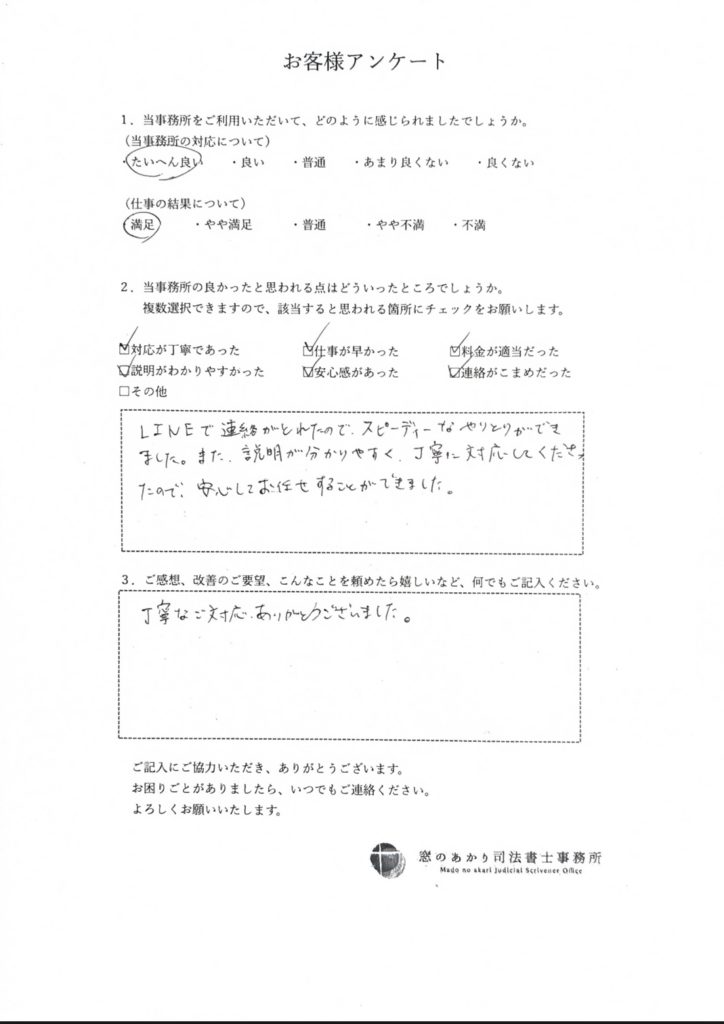 お客様アンケート
1．当事務所をご利用いただいて、どのように感じられましたでしょうか。
（当事務所の対応について）
・たいへん良い ・良い ・普通 ・あまり良くない ・良くない
（仕事の結果について）
・満足 ・やや満足 ・普通 ・やや不満 ・不満
2．当事務所の良かったと思われる点はどういったところでしょうか。
複数選択できますので、該当すると思われる箇所にチェックをお願いします。
☑対応が丁寧であった ☑仕事が早かった ☑料金が適当だった
☑説明がわかりやすかった ☑安心感があった ☑連絡がこまめだった
□その他
LINEで連絡がとれたので、スピーディーなやりとりができ
ました。また、説明が分かりやすく、丁寧に対応してくださっ
たので、安心してお任せすることができました。
3．ご感想、改善のご要望、こんなことを頼めたら嬉しいなど、何でもご記入ください。
丁寧なご対応、ありがとうございました。
ご記入にご協力いただき、ありがとうございます。
お困りごとがありましたら、いつでもご連絡ください。
よろしくお願いいたします。
窓のあかり司法書士事務所
Mado no akari Judicial Scrivener Office